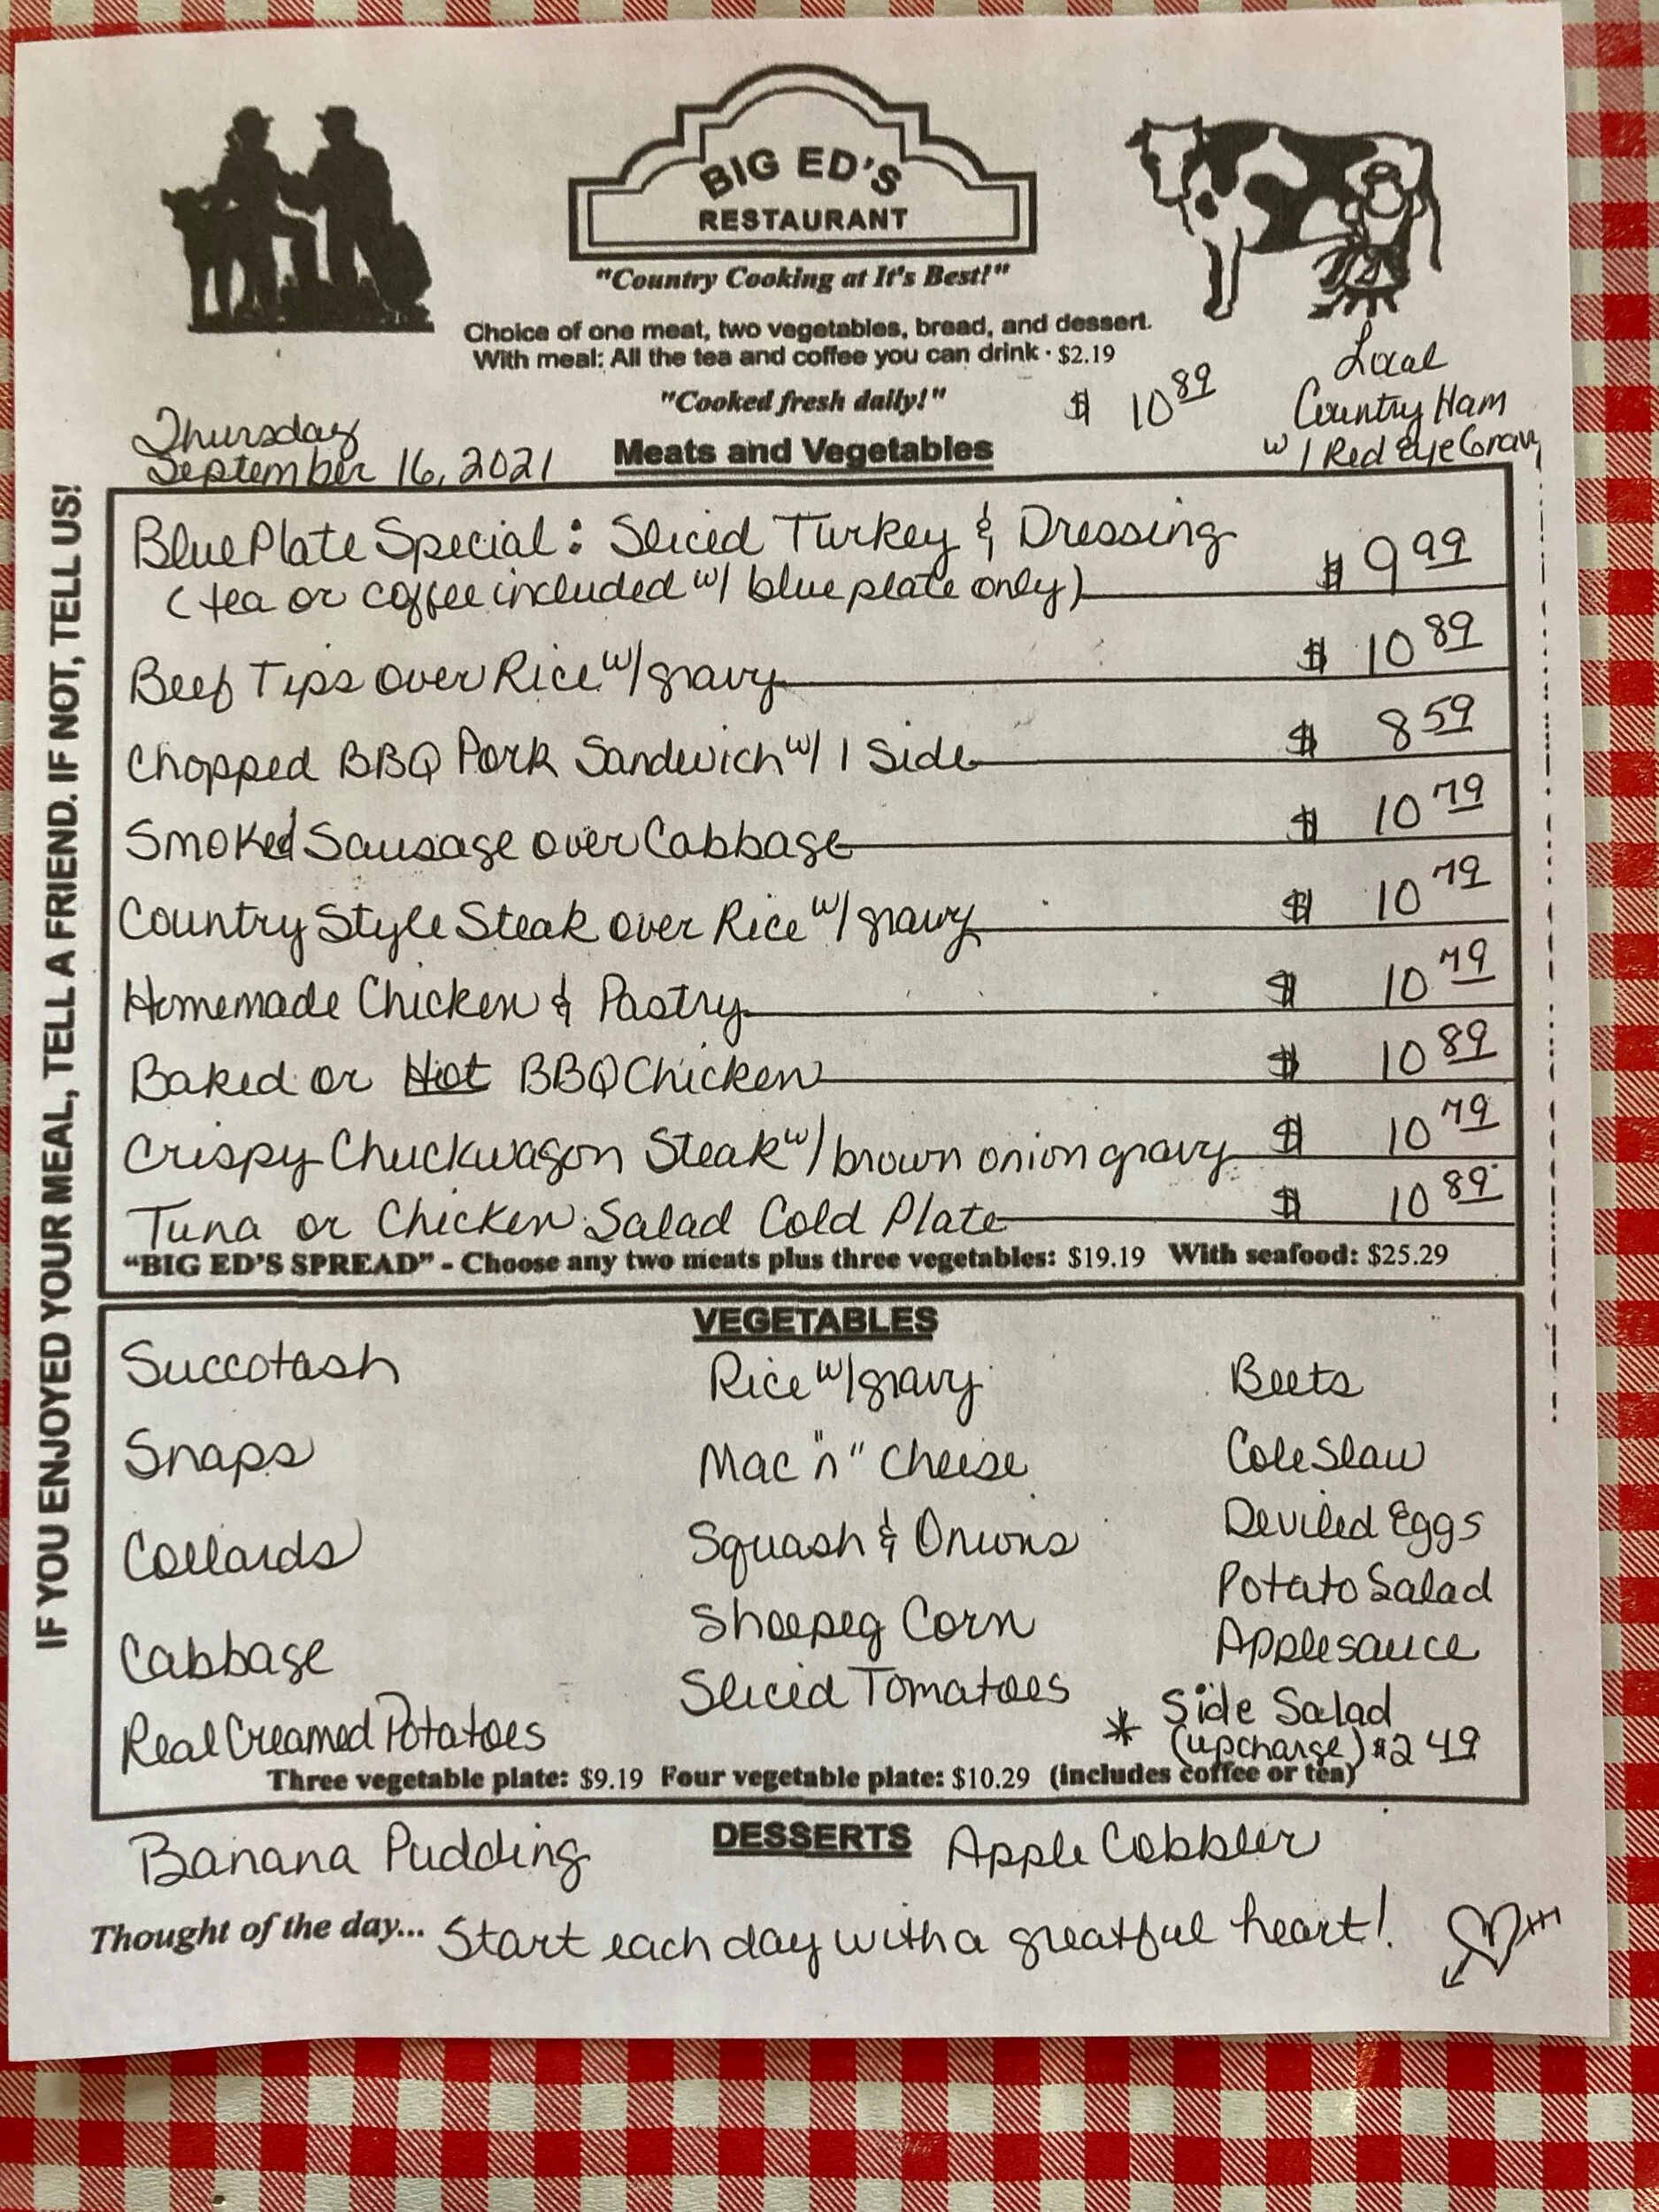 BIG ED'S
RESTAURANT
"Country Cooking at It's Best!"
Choice of one meat, two vegetables, bread, and dessert.
With meal: All the tea and coffee you can drink · $2.19
"Cooked fresh daily!"
$ 10 89
Local
Country Ham
w/ Red Eye Gravy
Thursday
September 16, 2021
Meats and Vegetables
IF YOU ENJOYED YOUR MEAL, TELL A FRIEND. IF NOT, TELL US!
Blue Plate Special: Sliced Turkey & Dressing
(tea or coffee included w/ blue plate only) $ 9 99
Beef Tips over Rice w/ gravy $ 10 89
Chopped BBQ Pork Sandwich w/ 1 Side $ 8 59
Smoked Sausage over Cabbage $ 10 79
Country Style Steak over Rice w/ gravy $ 10 79
Homemade Chicken & Pastry $ 10 79
Baked or Hot BBQ Chicken $ 10 89
Crispy Chuckwagon Steak w/ brown onion gravy $ 10 79
Tuna or Chicken Salad Cold Plate $ 10 89
"BIG ED'S SPREAD" - Choose any two meats plus three vegetables: $19.19 With seafood: $25.29
VEGETABLES
Succotash
Snaps
Collards
Cabbage
Real Creamed Potatoes
Rice w/ gravy
Mac "n" Cheese
Squash & Onions
Shoepeg Corn
Sliced Tomatoes
Beets
Cole Slaw
Deviled Eggs
Potato Salad
Applesauce
* Side Salad
(upcharge) $2 49
Three vegetable plate: $9.19 Four vegetable plate: $10.29 (includes coffee or tea)
DESSERTS
Banana Pudding
Apple Cobbler
Thought of the day... Start each day with a greatful heart!